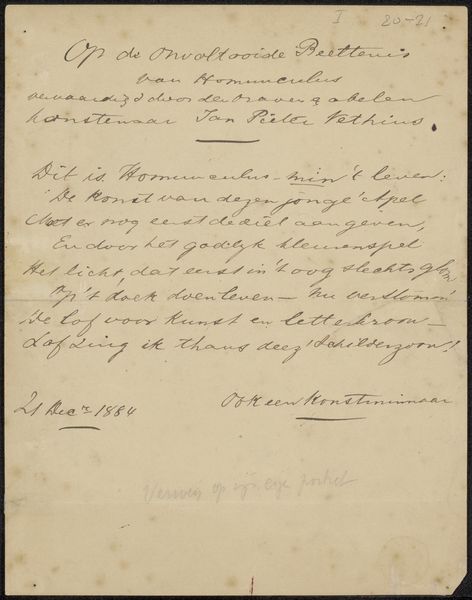 I 20-21
Op de Onvoltooide Beeltenis
van Homunculus
vervaardigd door den braven & abelen
konstenaar Jan Pieter Vethius.
Dit is Homunculus - min 't leven:
De konst van dezen jonge' Apel
Moet er nog eerst de ziel aan geven,
En door het godlyk kleurenspel
Het licht, dat eerst in 't oog slechts glom,
Op 't doek doen leven - Nu verstomm'
De lof voor kunst en letterkroon -
Lof zing ik thans deez' Schilderzoon!
21 Decr 1884
Ook een Konstminnaar
op zijn eige portret